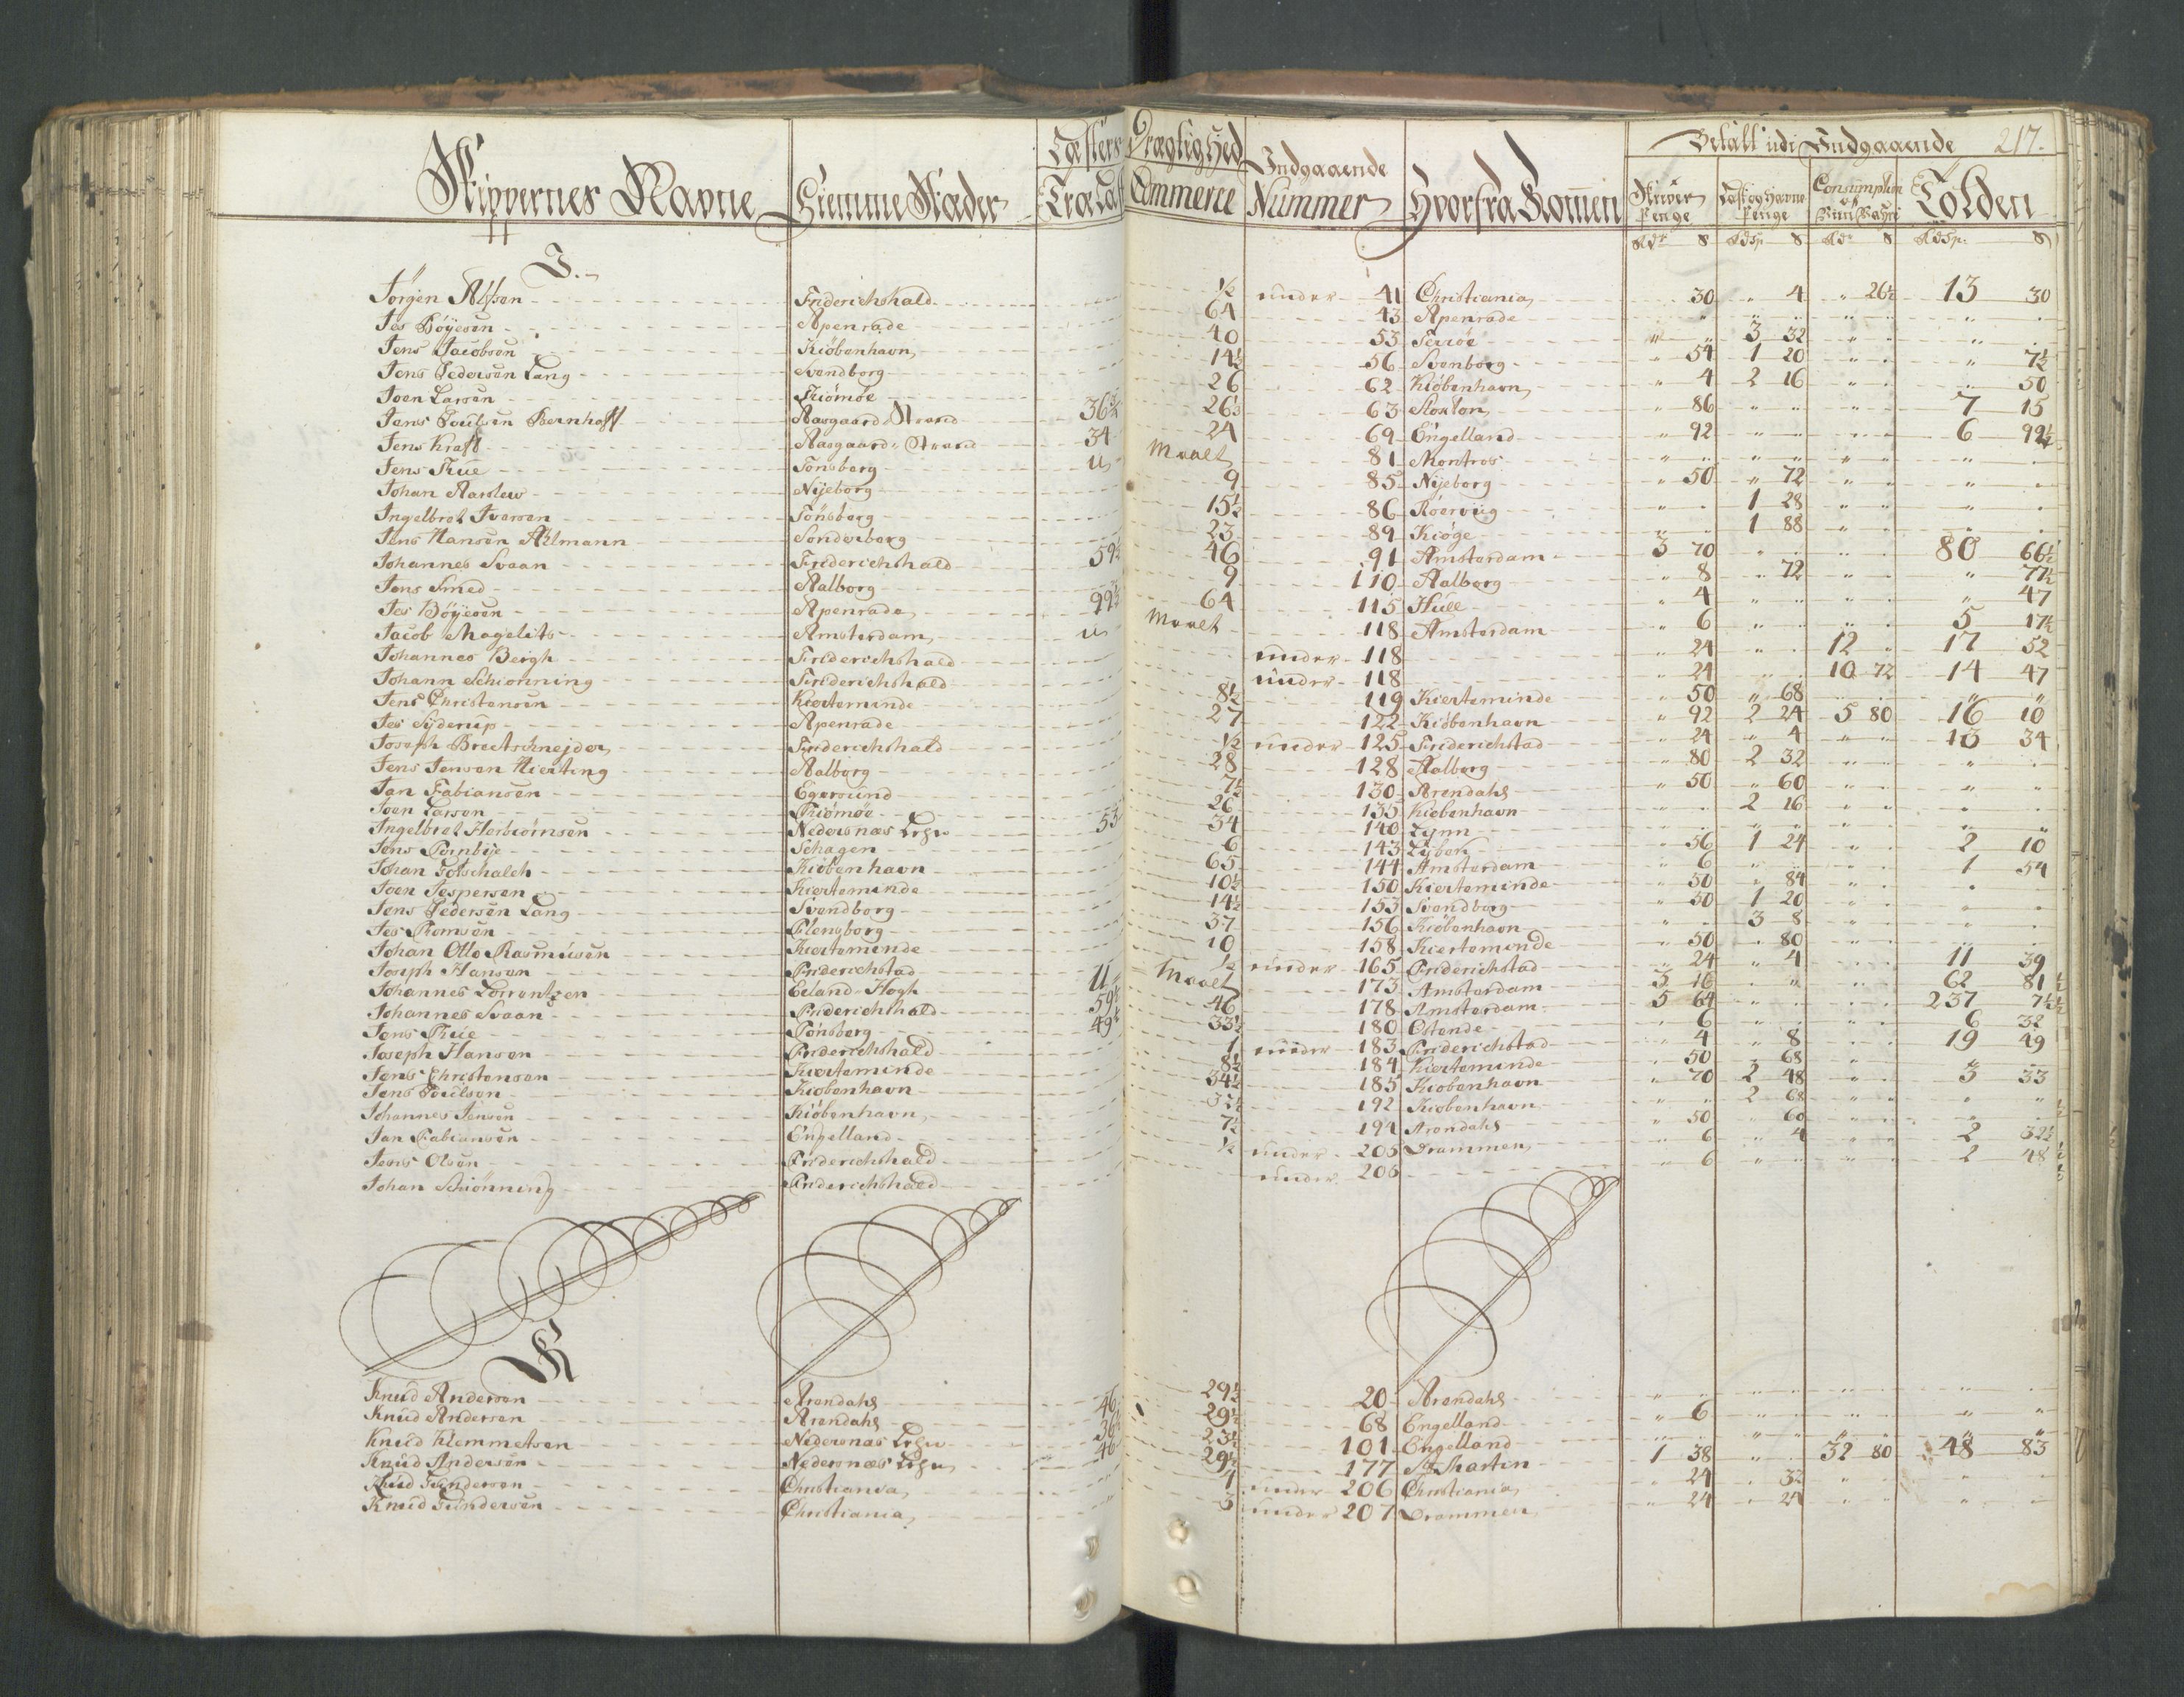 Skippernes Navne Hiemme Stæder Læsters Drægtighed Indgaaende Nummer Hvorfra Kommen Betalt udi Indgaaende 217.
Træ Læst Commerce Skriver Penge Læst og Havne Penge Consumption Tolden
J.
Jörgen Alfsen Friderichshald ½ under 41 Christiania 30 " 4 " 26½ 13 30
Jes Böyesen Apenrade 64 43 Apenrade
Jens Jacobsen Kiöbenhavn 40 53 3 32
Jens Pedersen Lang Svendborg 14½ 56 Svenborg " 54 1 20 7½
Joen Larsen Tiömöe 26 62 Kiöbenhavn " 4 2 16 50
Jens Poulsen Bernhoft Aasgaard Strand 36¾ 26½ 63 Stoxton " 86 7 15
Jens Kraft Aasgaards Strand 34 24 69 Engelland " 92 6 92½
Jens Thue Tönsberg u Maalt 81 Montros
Johan Aarslew Nyeborg 9 85 Nyeborg " 50 " 72
Ingelbret Iversen Tönsberg 15½ 86 Röerviig 1 28
Jens Hansen Ahlmann Sonderborg 23 89 Kiöge 1 88
Johannes Svaan Friderichshald 59½ 46 91 Amsterdam 3 70 80 66½
Jens Smed Aalborg 9 110 Aalborg " 8 " 72 " 77½
Jes Böyesen Apenrade 99½ 64 115 Hull " 4 " 47
Jacob Magelits Amsterdam u Maalt 118 Amsterdam " 6 5 17½
Johannes Bergh Friderichshald under 118 " 24 12 " 17 52
Johann Schionning Friderichshald under 118 " 24 10 72 14 47
Jens Christensen Kierteminde 8½ 119 Kierteminde " 50 " 68 " "
Jes Syderup Apenrade 27 122 Kiöbenhavn " 92 2 24 5 80 16 10
Joseph Bretschnejder Friderichshald ½ under 125 Friderichstad " 24 " 4 13 34
Jens Jensen Hierting Aalborg 28 128 Aalborg " 80 2 32
Jan Fabiansen Egersund 7½ 130 Arendahl " 50 " 60
Joen Larsen Tiömöe 26 135 Kiöbenhavn 2 16
Ingelbret Herbiörnsen Nedernæs Lehn 53 34 140 Lynn
Jens Schagen 6 143 Lybek " 56 1 24 2 10
Johan Gotschalch Kiöbenhavn 65 144 Amsterdam " 6 1 54
Joen Jespersen Kierteminde 10½ 150 Kierteminde " 50 " 84
Jens Pedersen Lang Svendborg 14½ 153 Svendborg " 50 1 20
Jes Thomsen Flensborg 37 156 Kiöbenhavn 3 8
Johan Otto Rasmusen Kierteminde 10 158 Kierteminde " 50 " 80
Joseph Hansen Friderichstad ½ under 165 Friderichstad " 24 " 4 11 39
Johannes Lorrentzen Eeland-Hogh U Maalt 173 Amsterdam 3 16 62 81½
Johannes Svaan Friderichshald 59½ 46 178 Amsterdam 5 64 237 7½
Jens Thue Tönsberg 49½ 33½ 180 Ostende " 6 6 32
Joseph Hansen Friderichshald 1 under 183 Friderichstad " 4 " 8 19 49
Jens Christensen Kierteminde 8½ 184 Kierteminde " 50 " 68
Jens Poulsen Kiöbenhavn 34½ 185 Kiöbenhavn " 70 2 48 3 33
Johannes Jensen Kiöbenhavn 192 Kiöbenhavn 2 68
Jan Fabiansen Engelland 7½ 194 Arendahl " 50 " 60
Jens Olsen Friderichshald ½ under 205 Drammen " 6 " 4 2 32½
Johan Schiönning Friderichshald under 206 " 6 2 48
K
Knud Andersen Arendahl 29½ 20 Arendahl
Knud Andersen Arendahl 46 29½ 68 Engelland " 6
Knud Klemmetsen Nedernæs Lehn 36½ 23½ 101 Engelland
Knud Andersen Nedernæs Lehn 46 29½ 177 St Martin 1 38 32 80 48 83
Knud Gundersen Christiania 4 under 206 Christiania " 24 " 32
Knud Gundersen Christiania 3 under 207 Drammen " 24 " 24